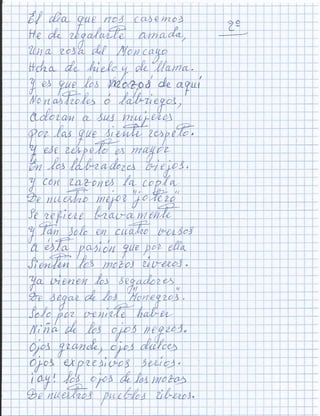 El dia que nos casemos
2º
He de regalarte amada,
Una rosa del Moncayo
Hcha de hielo y de llama.
Y es que los mozos de aquí
Monastroles ó labriegos,
Adoran a sus mujeres
Por las que siente respeto.
Y ese respeto es mayor
En los labradores viejos.
Y con razones la copla
De nuestro mejor "jotero"
Se refiere bravamente
Y tan solo en cuatro versos
A esta pasión que por ella
Sienten los mozos riveros.
Ya vienen los segadores
De segar de los "Monegros".
Solo por venirte haber
Niña de los ojos negros.
Ojos grande, ojos dulces
Ojos expresivos serios.
¡ay! los ojos de las mozas
De nuestros pueblos riberos.